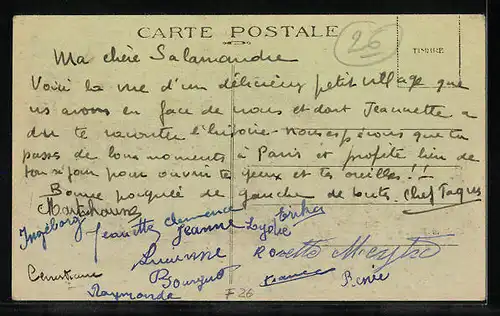 CARTE POSTALE
26
TIMBRE
Ma chère Salamandre
Voici la vue d'un délicieux petit village que
ns avons en face de nous et dont Jeannette a
du te raconter l'histoire. Nous espérons que tu
passes de bons moments à Paris et profite bien de
ton séjour pour ouvrir tes yeux et tes oreilles !!
Bonne poignée de gauche de toutes. Chef Taques
Ingeborg Jeannette Clemence Jeanne Lydie Erika
Lucienne Rosette
Bourquin France Renée
Raymonde F 26